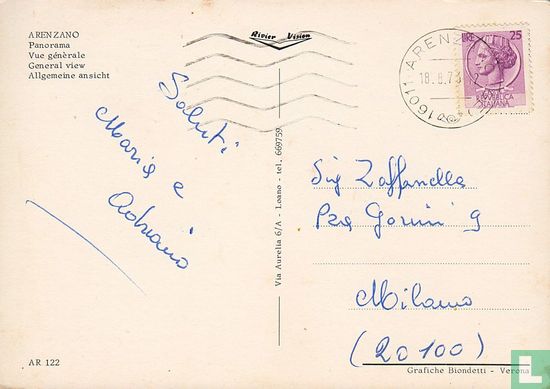 ARENZANO
Panorama
Vue générale
General view
Allgemeine ansicht
Rivier Vision
16011 ARENZ
18.8.73
LIRE 25
REPUBBLICA
ITALIANA
Saluti
Maria e
Adriano
Via Aurelia 6/A - Loano - tel. 669759
Sig Zaffanella
Pza Gorini 9
Milano
(20100)
AR 122
Grafiche Biondetti - Verona
catawiki